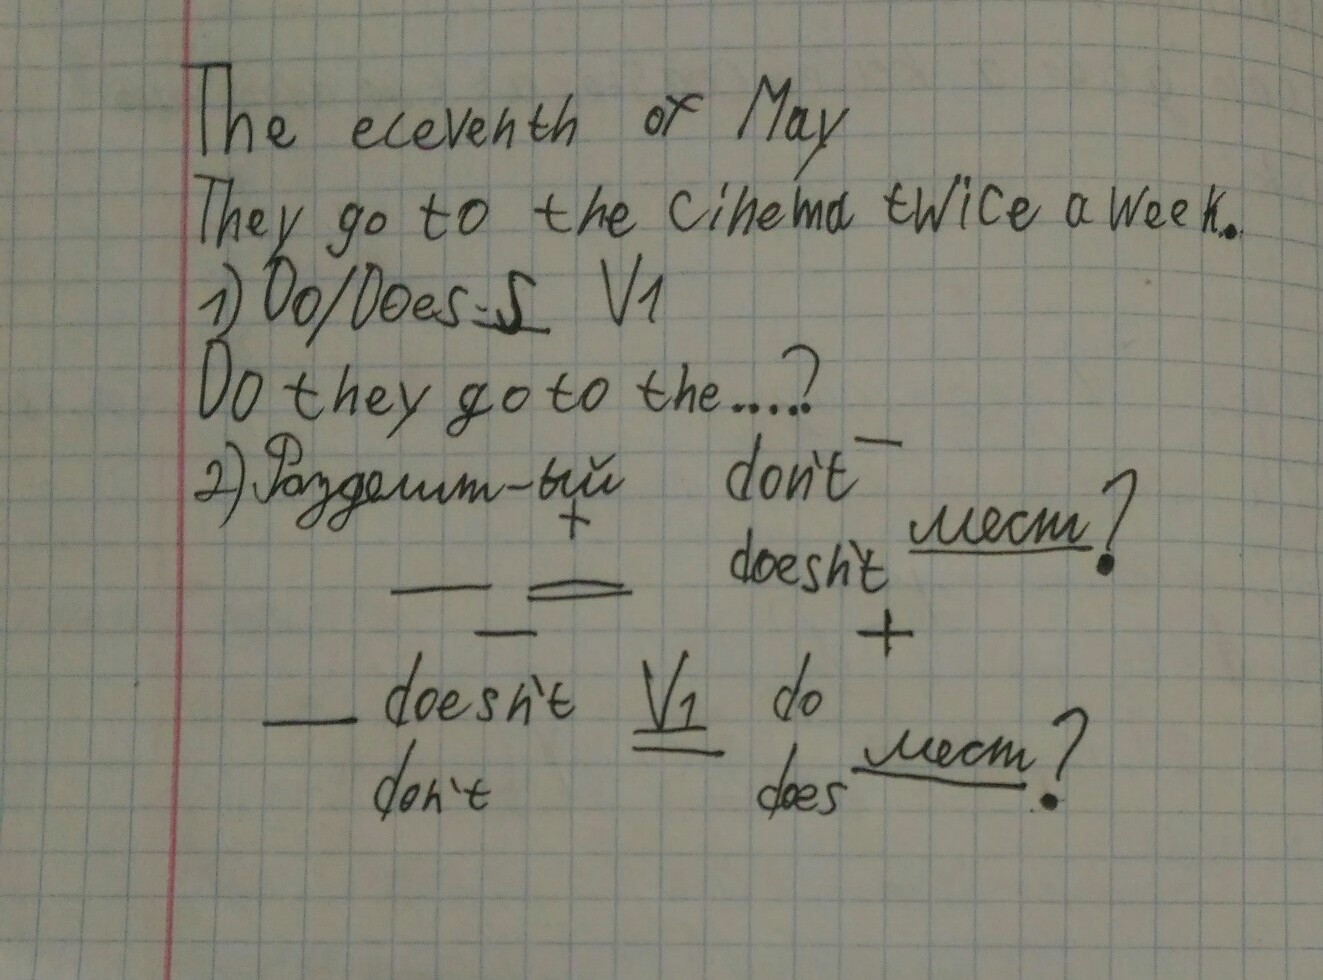 The eleventh of May
They go to the cinema twice a week.
1) Do/Does S V1
Do they go to the.....?
2) Разделит-ый don't —
+ мест?
doesn't
— +
doesn't V1 do
мест?
don't does